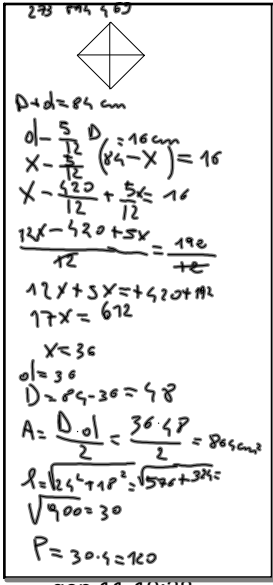 D+d=84 cm
d-5/12 D =16cm
x-5/12 (84-x)=16
x-420/12+5x/12= 16
12x-420+5x/12=192/12
12x+5x=+420+192
17x=612
x=36
d=36
D=84-36=48
A=D·d/2=36·48/2=864cm²
l=√24²+18²=√576+324=
√900=30
P=30·4=120